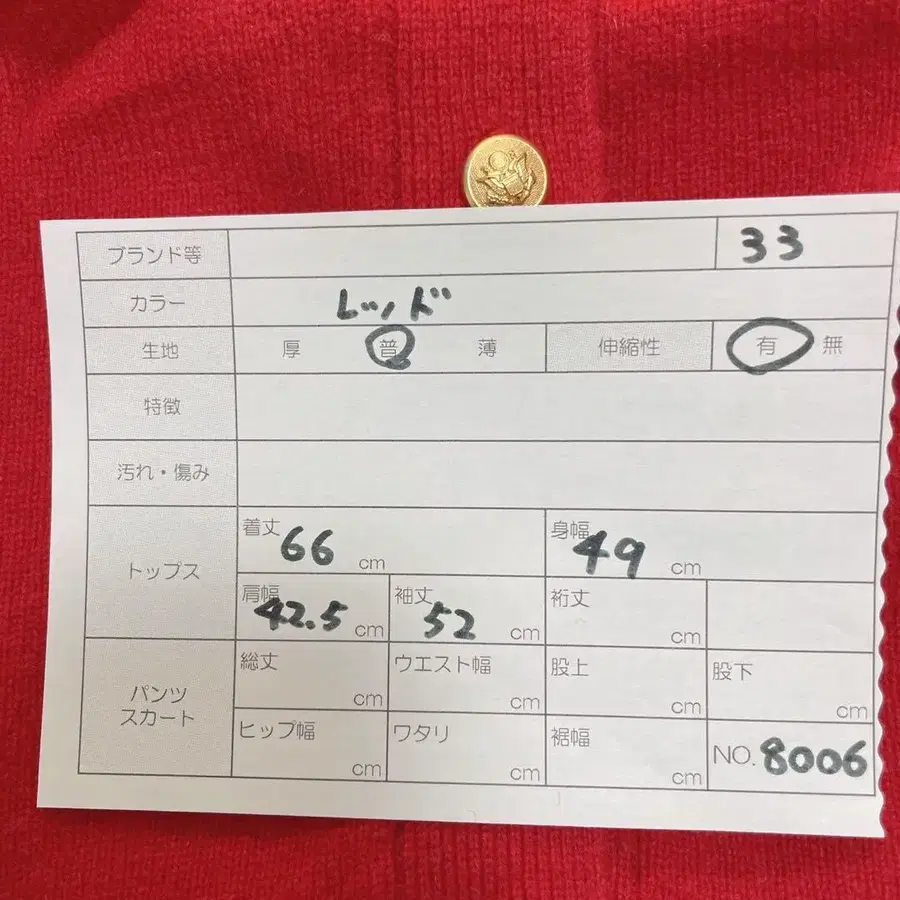 ブランド等 33
カラー レッド
生地 厚 普 薄 伸縮性 有 無
特徴
汚れ・傷み
トップス 着丈 66 cm 身幅 49 cm
肩幅 42.5 cm 袖丈 52 cm 裄丈 cm
パンツ スカート 総丈 cm ウエスト幅 cm 股上 cm 股下 cm
ヒップ幅 cm ワタリ cm 裾幅 cm NO. 8006